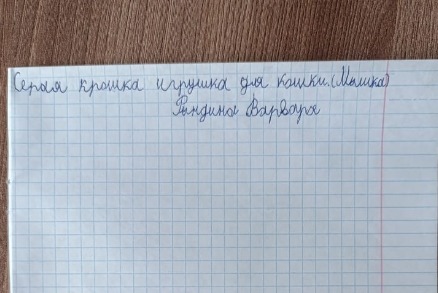 Серая крошка игрушка для кошки. (Мышка)
Рындина Варвара